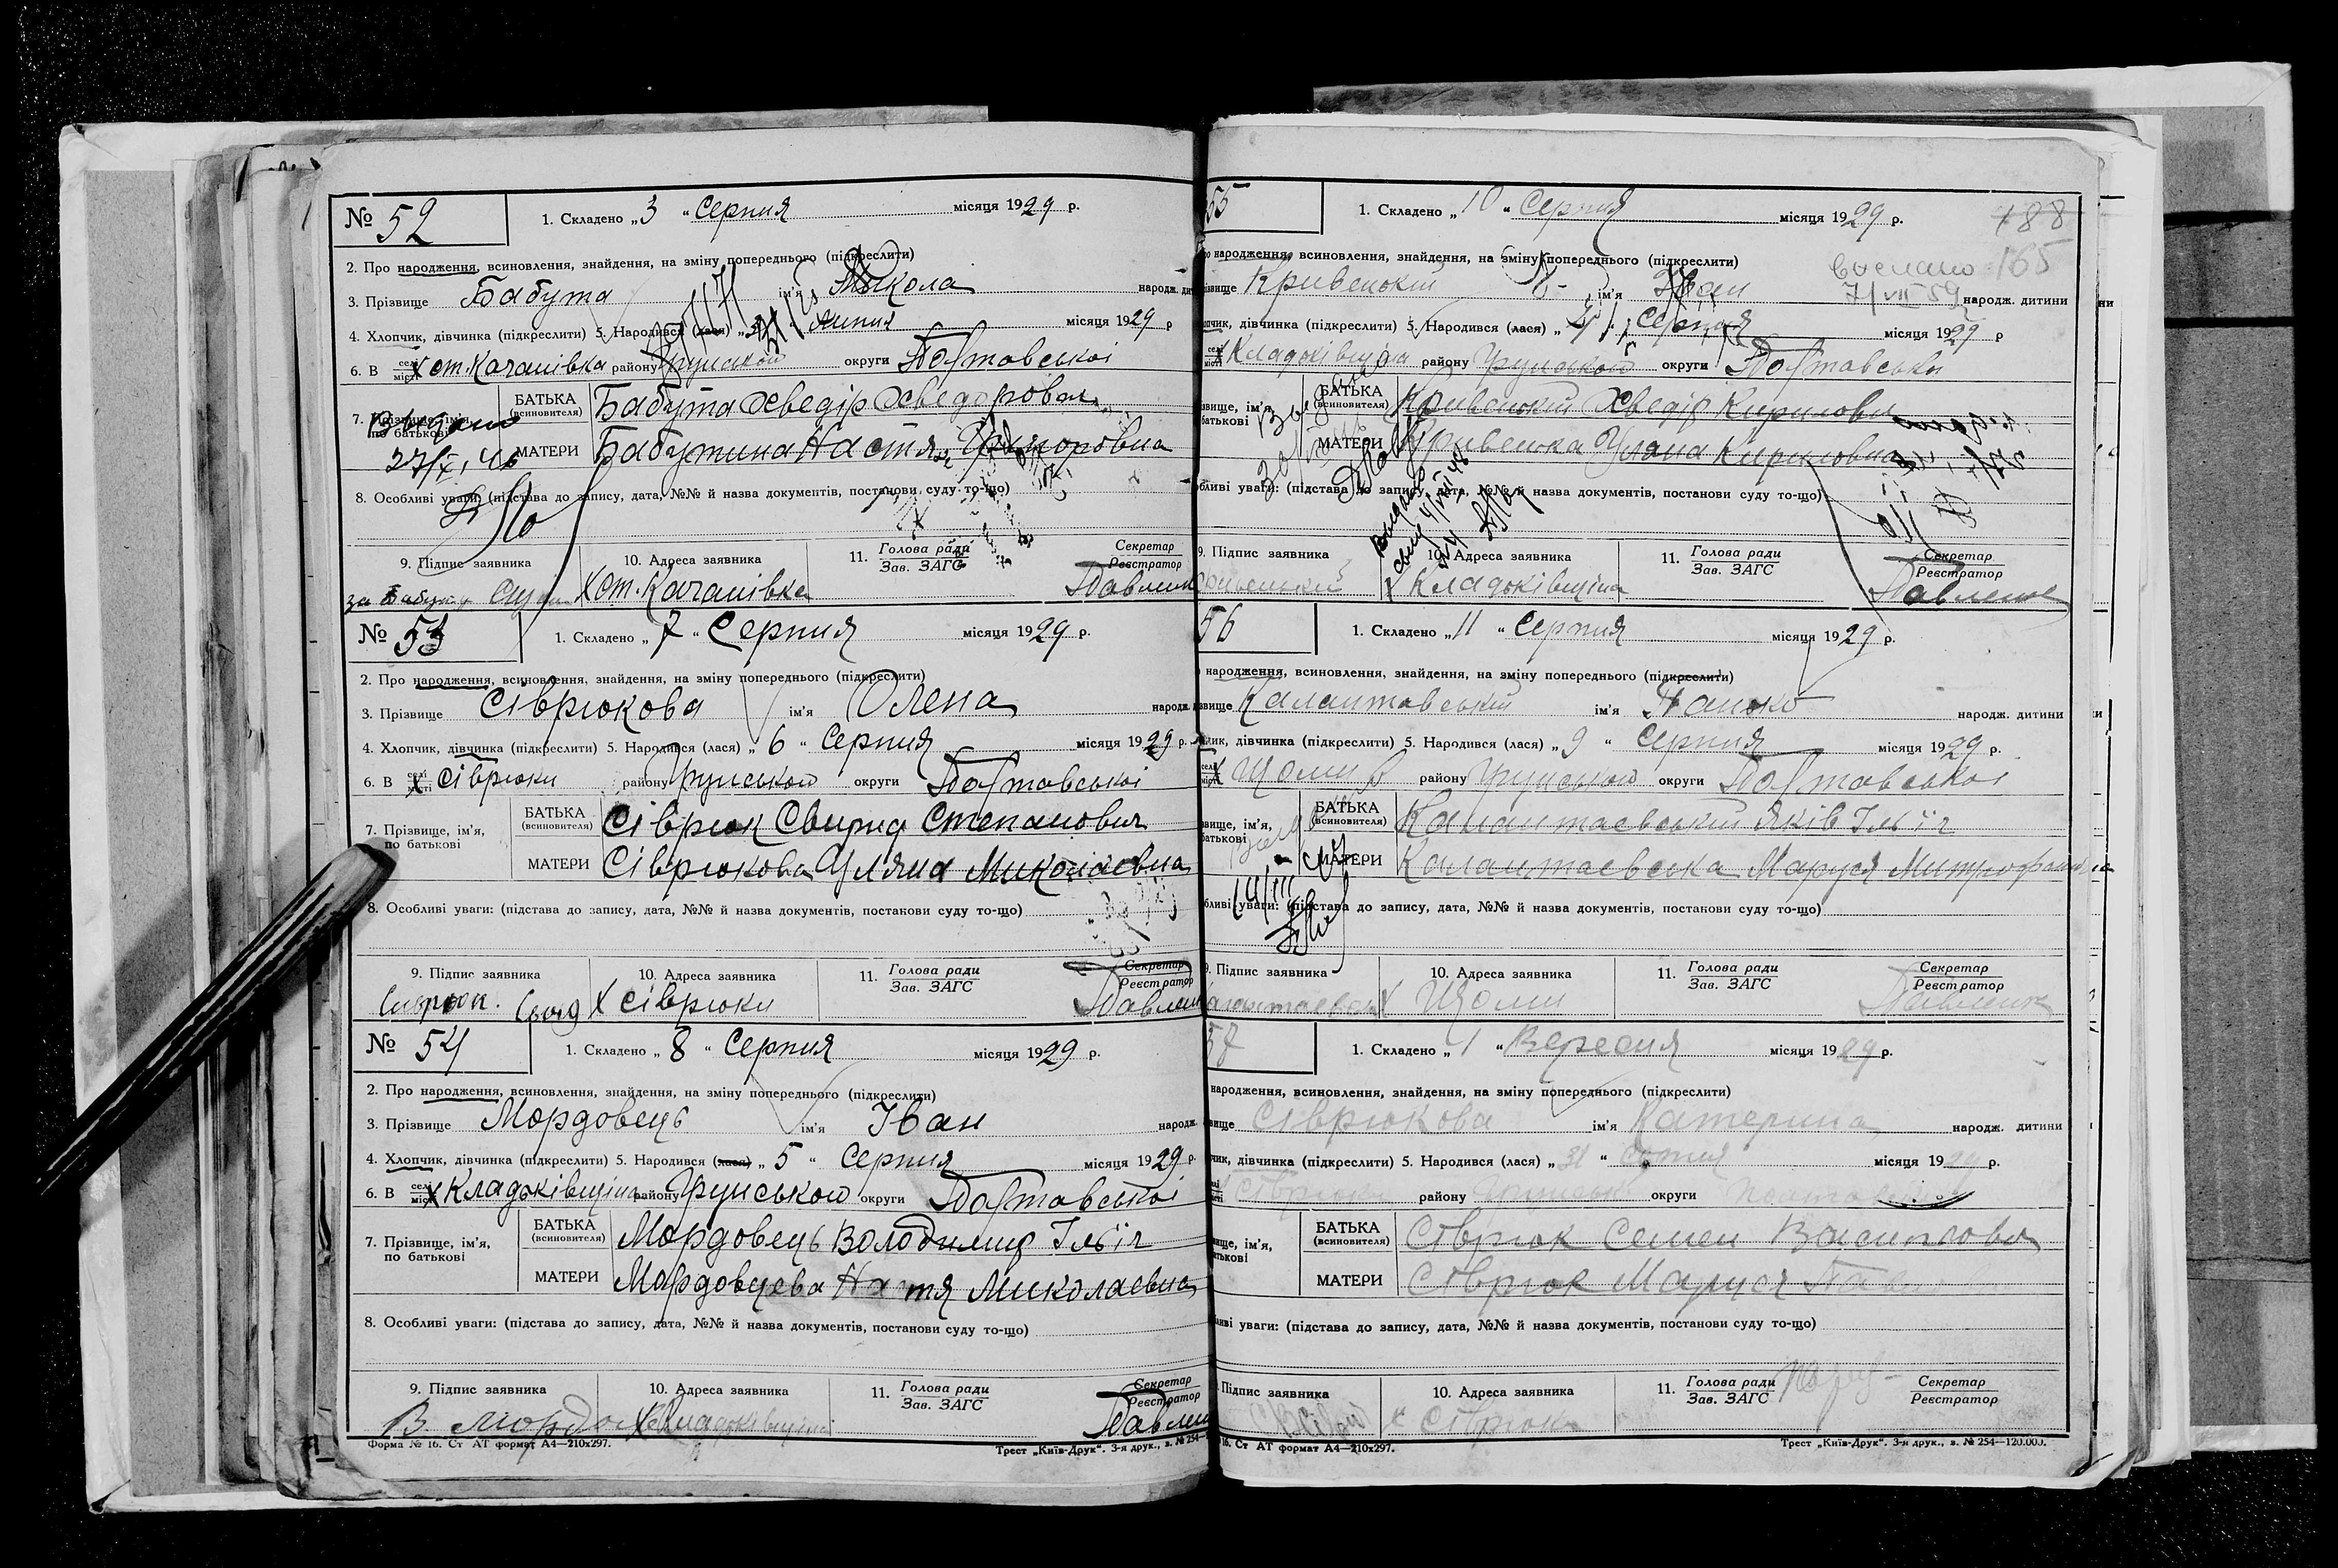 № 52
1. Складено „3“ Серпня місяця 1929 р.
2. Про народження, всиновлення, знайдення, на зміну попереднього (підкреслити)
3. Прізвище Бабута ім'я Микола народж.
4. Хлопчик, дівчинка (підкреслити) 5. Народився (лася) „ “ липня місяця 1929 р
6. В селі місті х ст. Качанівка району Грунського округи Полтавської
7. Прізвище, ім'я, по батькові
БАТЬКА (всиновителя) Бабута Хведір Хведорович
МАТЕРИ Бабутина Настя Григоровна
Выдано
27/X, 46
8. Особливі уваги: (підстава до запису, дата, №№ й назва документів, постанови суду то-що)
9. Підпис заявника 10. Адреса заявника 11. Голова ради Зав. ЗАГС Секретар Реєстратор
за Бабуту х ст. Качанівка Павлен
№ 53
1. Складено „7“ Серпня місяця 1929 р.
2. Про народження, всиновлення, знайдення, на зміну попереднього (підкреслити)
3. Прізвище Сіврюкова ім'я Олена народж.
4. Хлопчик, дівчинка (підкреслити) 5. Народився (лася) „6“ Серпня місяця 1929 р.
6. В селі місті х Сіврюки району Грунського округи Полтавської
7. Прізвище, ім'я, по батькові
БАТЬКА (всиновителя) Сіврюк Свирид Степанович
МАТЕРИ Сіврюкова Уляна Миколаєвна
8. Особливі уваги: (підстава до запису, дата, №№ й назва документів, постанови суду то-що)
9. Підпис заявника 10. Адреса заявника 11. Голова ради Зав. ЗАГС Секретар Реєстратор
х Сіврюки Павлен
№ 54
1. Складено „8“ Серпня місяця 1929 р.
2. Про народження, всиновлення, знайдення, на зміну попереднього (підкреслити)
3. Прізвище Мордовець ім'я Іван народж.
4. Хлопчик, дівчинка (підкреслити) 5. Народився (лася) „5“ Серпня місяця 1929 р.
6. В селі місті х Кладьківщина району Грунського округи Полтавської
7. Прізвище, ім'я, по батькові
БАТЬКА (всиновителя) Мордовець Володимир Ілліч
МАТЕРИ Мордовцева Настя Миколаєвна
8. Особливі уваги: (підстава до запису, дата, №№ й назва документів, постанови суду то-що)
9. Підпис заявника 10. Адреса заявника 11. Голова ради Зав. ЗАГС Секретар Реєстратор
В. Мордов х Кладьківщина Павлен
Форма № 16. Ст АТ формат А4—210х297. Трест „Київ-Друк“. 3-я друк., з. № 254—
55
1. Складено „10“ Серпня місяця 1929 р.
188
народження, всиновлення, знайдення, на зміну попереднього (підкреслити)
выслано 165
7/VII 59
Кривенький ім'я Іван народж. дитини
дівчинка (підкреслити) 5. Народився (лася) „4“ Серпня місяця 1929 р
х Кладьківщина району Грунського округи Полтавськи
БАТЬКА (всиновителя) Кривенький Хведір Кирилович
МАТЕРИ Кривенька Уляна Кириловна
уваги: (підстава до запису, дата, №№ й назва документів, постанови суду то-що)
9. Підпис заявника 10. Адреса заявника 11. Голова ради Зав. ЗАГС Секретар Реєстратор
х Кладьківщина Павленко
56
1. Складено „11“ Серпня місяця 1929 р.
народження, всиновлення, знайдення, на зміну попереднього (підкреслити)
Калантаєвський ім'я Панько народж. дитини
дівчинка (підкреслити) 5. Народився (лася) „9“ Серпня місяця 1929 р.
х Щоми району Грунського округи Полтавської
БАТЬКА (всиновителя) Калантаєвський Яків Ілліч
МАТЕРИ Калантаєвська Маруся Митрофановна
уваги: (підстава до запису, дата, №№ й назва документів, постанови суду то-що)
9. Підпис заявника 10. Адреса заявника 11. Голова ради Зав. ЗАГС Секретар Реєстратор
х Щоми Павленк
57
1. Складено „1“ Вересня місяця 1929 р.
народження, всиновлення, знайдення, на зміну попереднього (підкреслити)
Сіврюкова ім'я Катерина народж. дитини
дівчинка (підкреслити) 5. Народився (лася) „31“ серпня місяця 1929 р.
району округи
БАТЬКА (всиновителя) Сіврюк Семен Васильович
МАТЕРИ Сіврюк Маруся
уваги: (підстава до запису, дата, №№ й назва документів, постанови суду то-що)
Підпис заявника 10. Адреса заявника 11. Голова ради Зав. ЗАГС Секретар Реєстратор
х Сіврюки
16. Ст АТ формат А4—210х297. Трест „Київ-Друк“. 3-я друк., з. № 254—120.000.